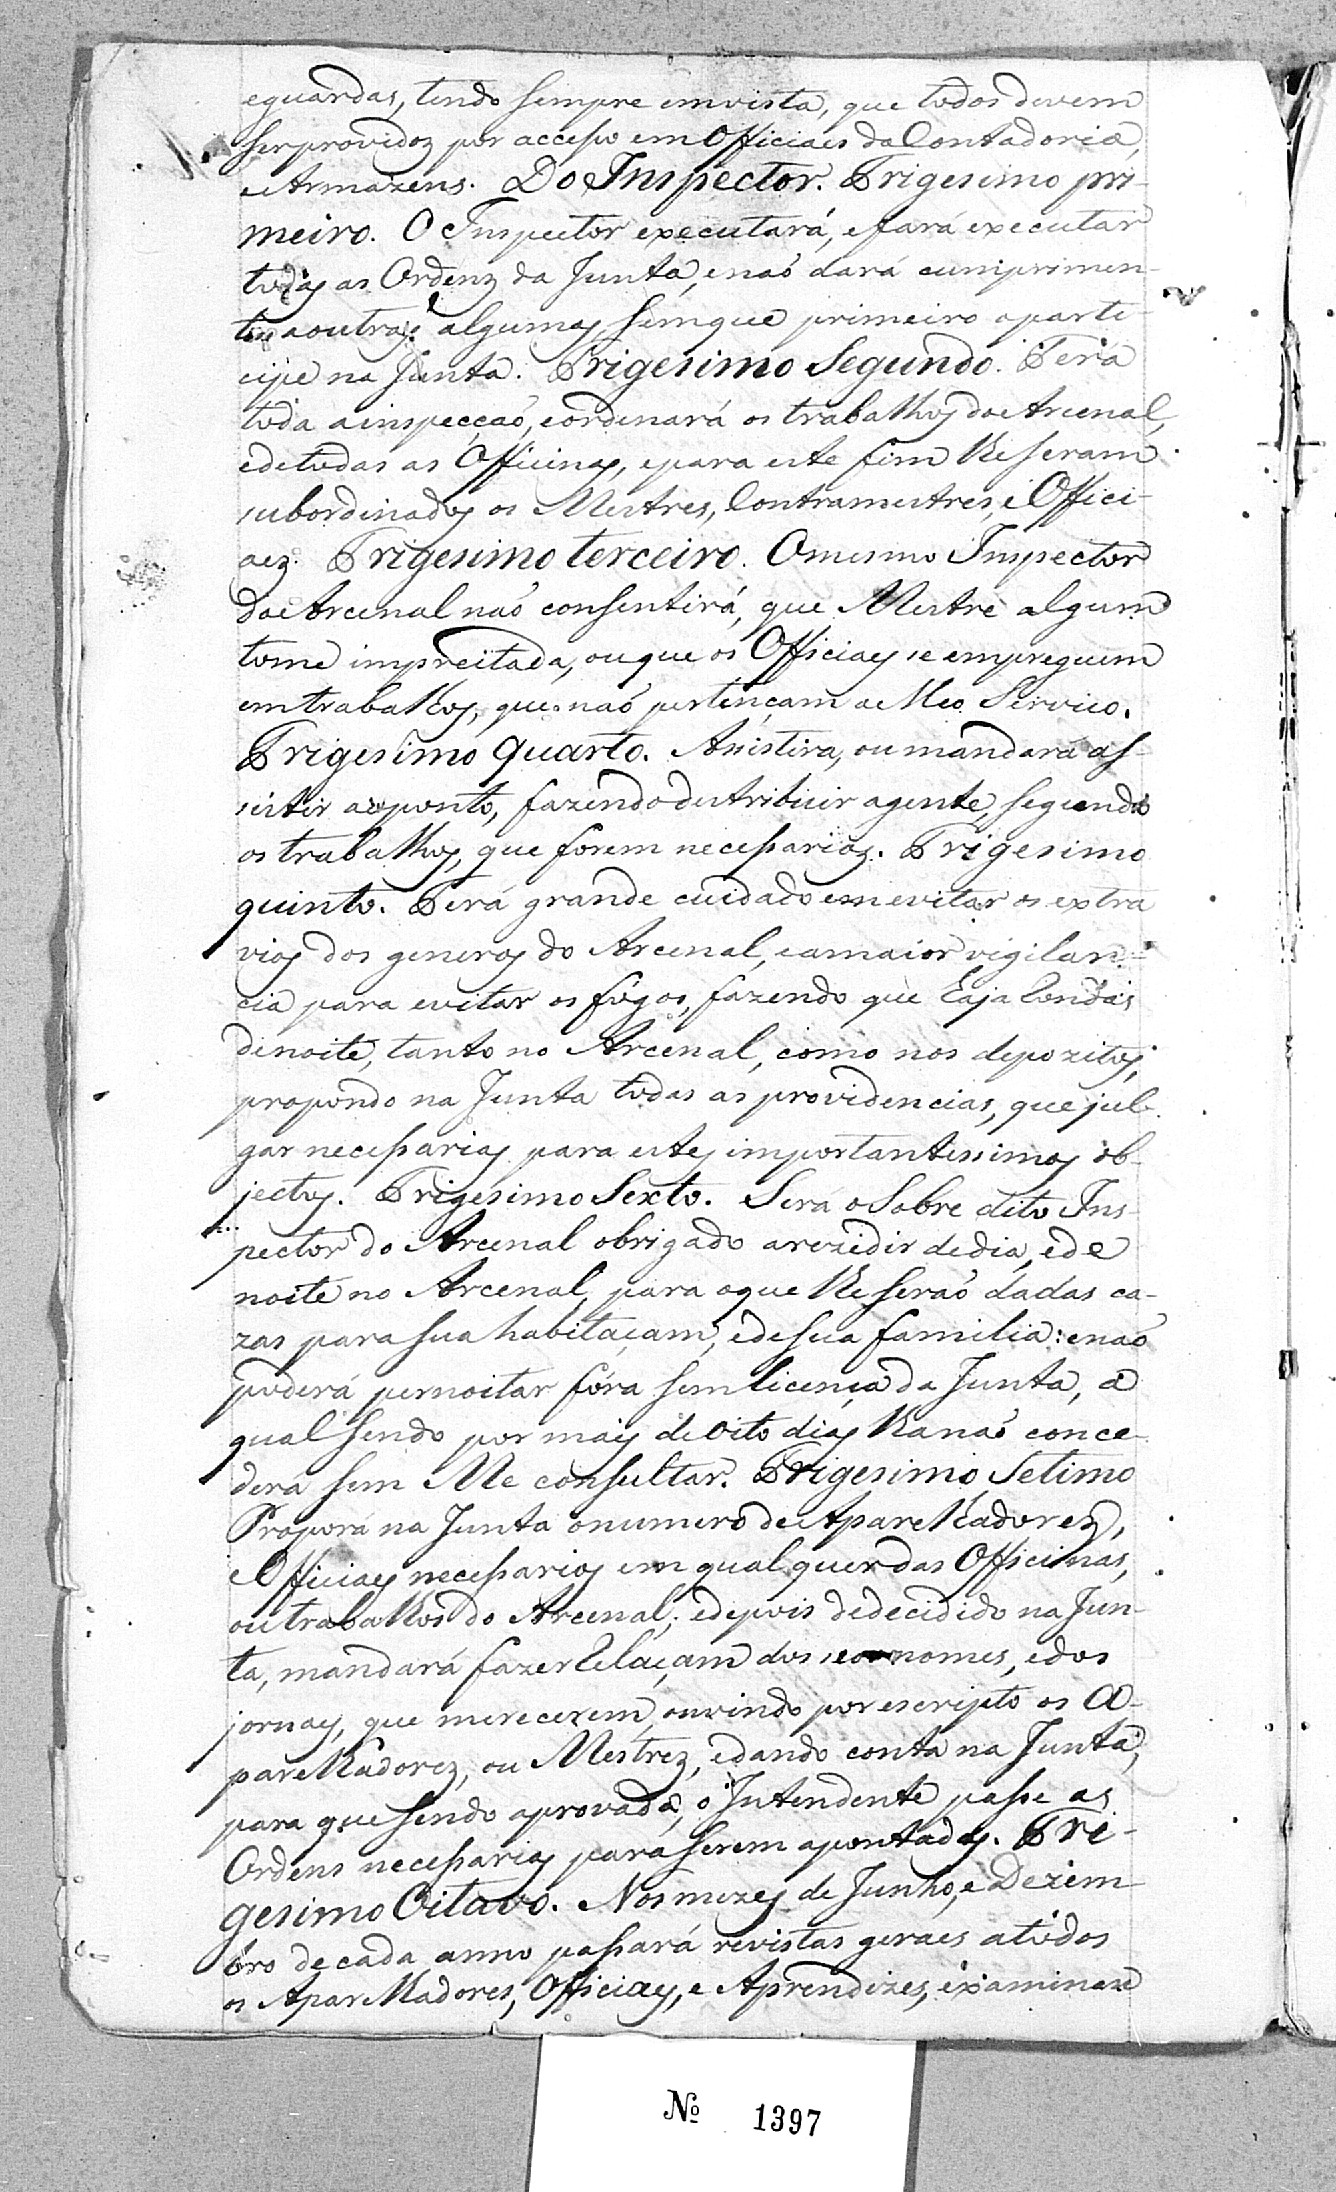 eguardas, tendo sempre emvista, que todos devem
serprovidoz por accesso em Officiaes da Contadoria,
e Armazens. Do Inspector. Trigesimo pri-
meiro. O Inspector executará, efará executar
todas as Ordenz da Junta, enaõ dará cumprimen-
to aoutras algumas, semque primeiro aparti-
cipe na Junta. Trigesimo Segundo. Terá
toda ainspecçaõ, eordenará os trabalhos do Arcenal,
edetodas as Officinas, epara este fim lhe seram
subordinados os Mestres, Contramestres, e Offici-
aez. Trigesimo terceiro. Omesmo Inspector
do Arcenal naõ consentirá, que Mestre algum
tome impreitada, ouque os Officiaes se empreguem
emtrabalhos, que naõ pertençam a Meo Servico.
Trigesimo quarto. Assistira, ou mandará as-
sistir aoponto, fazendo destribuir agente, segundo
os trabalhos, que forem necessarios. Trigesimo
quinto. Terá grande cuidado em evitar os extra
vios dos generos do Arcenal, eamaior vigilan-
cia para evitar os fogos, fazendo que haja rondas
denoite, tanto no Arcenal, como nos depozitos,
propondo na Junta todas as providencias, que jul-
gar necessarias para estes importantissimos ob-
jectos. Trigesimo Sexto. Será o Sobre dito Ins-
pector do Arcenal obrigado arezedir dedia, ede
noite no Arcenal, para oque lhe seraõ dadas ca-
zas para sua habitaçam, edesua familia: enaõ
poderá pernoitar fóra sem licença da Junta, a
qual sendo por mais de oito dias lha naõ conce-
derá sem Me consultar. Trigesimo Setimo
Proporá na Junta onumero de Aparelhadorez,
e Officiaes necessarios em qual quer das Officinas,
outrabalhos do Arcenal; edepois dedecidido na Jun-
ta, mandará fazer relaçam dos seos nomes, edos
jornaes, que merecerem, ouvindo por escripto os A-
parelhadorez, ou Mestrez, edando conta na Junta,
para que sendo aprovada, o Intendente passe as
Ordens necessarias para serem apontados. Tri-
gesimo Oitavo. Nos mezes de Junho, e Dezem-
bro de cada anno passará revistas geraes atodos
os Aparelhadores, Officiaes, e Aprendizes, examinará
Nº 1397